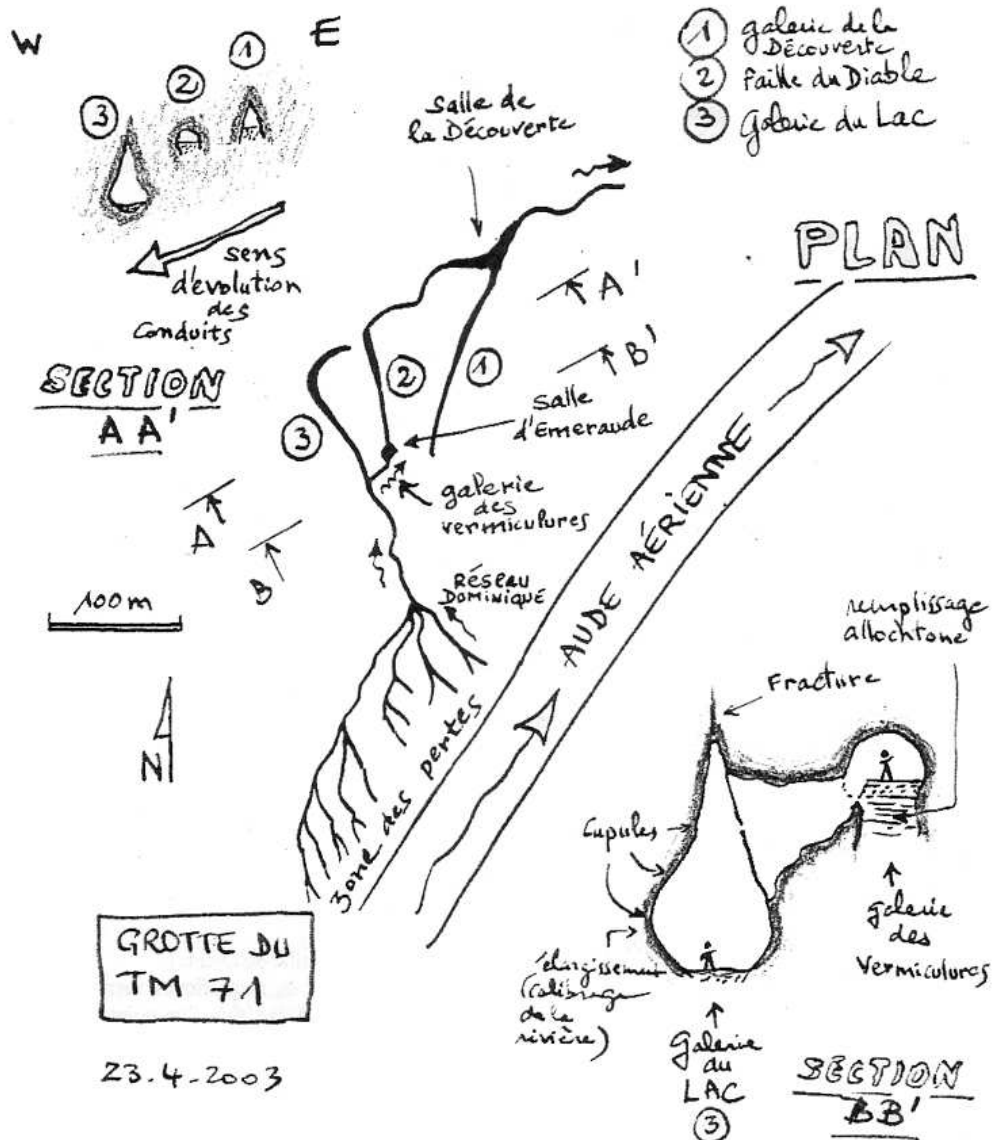 W
E
①
②
③
① galerie de la
Découverte
② Faille du Diable
③ Galerie du Lac
Salle de
la Découverte
sens
d'évolution
des
Conduits
SECTION
AA'
PLAN
A'
B'
①
②
③
salle
d'Emeraude
galerie
des
vermiculures
A
B
100m
RÉSEAU
DOMINIQUE
N
AUDE AÉRIENNE
Zone des pertes
remplissage
allochtone
Fracture
Cupules
élargissement
(calibrage
de la
rivière)
galerie
des
Vermiculures
Galerie
du
LAC
③
SECTION
BB'
GROTTE DU
TM 71
23.4.2003